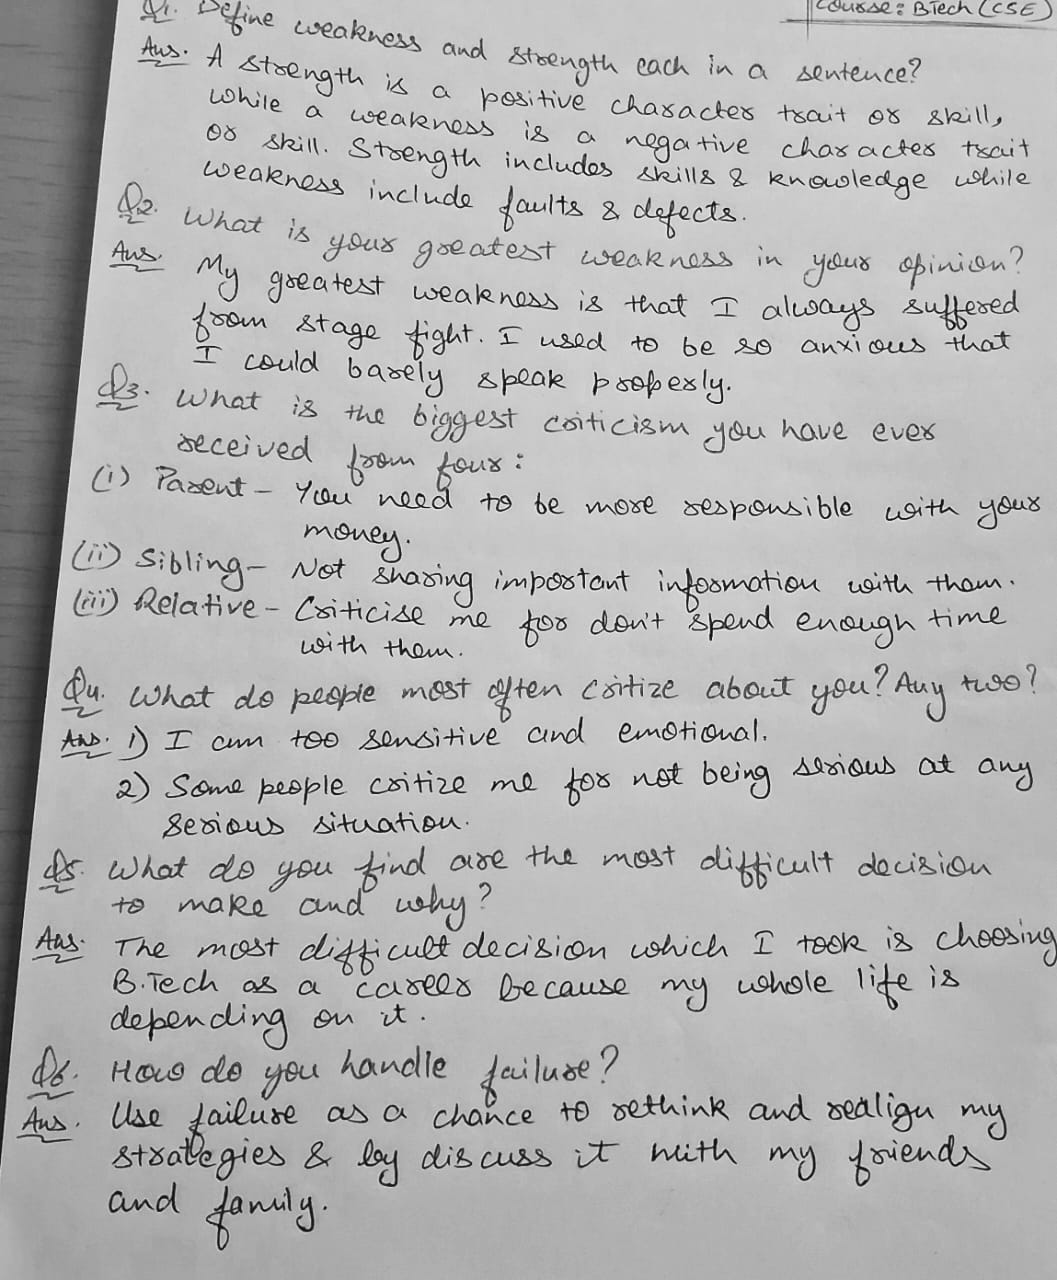 Course: BTech (CSE)
Q1. Define weakness and strength each in a sentence?
Ans. A strength is a positive character trait or skill,
while a weakness is a negative character trait
or skill. Strength includes skills & knowledge while
weakness include faults & defects.
Q2. What is your greatest weakness in your opinion?
Ans. My greatest weakness is that I always suffered
from stage fight. I used to be so anxious that
I could barely speak properly.
Q3. What is the biggest criticism you have ever
received from four:
(i) Parent - You need to be more responsible with your
money.
(ii) Sibling - Not sharing important information with them.
(iii) Relative - Criticise me for don't spend enough time
with them.
Q4. What do people most often critize about you? Any two?
Ans. 1) I am too sensitive and emotional.
2) Some people critize me for not being serious at any
serious situation.
Q5. What do you find are the most difficult decision
to make and why?
Ans. The most difficult decision which I took is choosing
B.Tech as a career because my whole life is
depending on it.
Q6. How do you handle failure?
Ans. Use failure as a chance to rethink and realign my
strategies & by discuss it with my friends
and family.